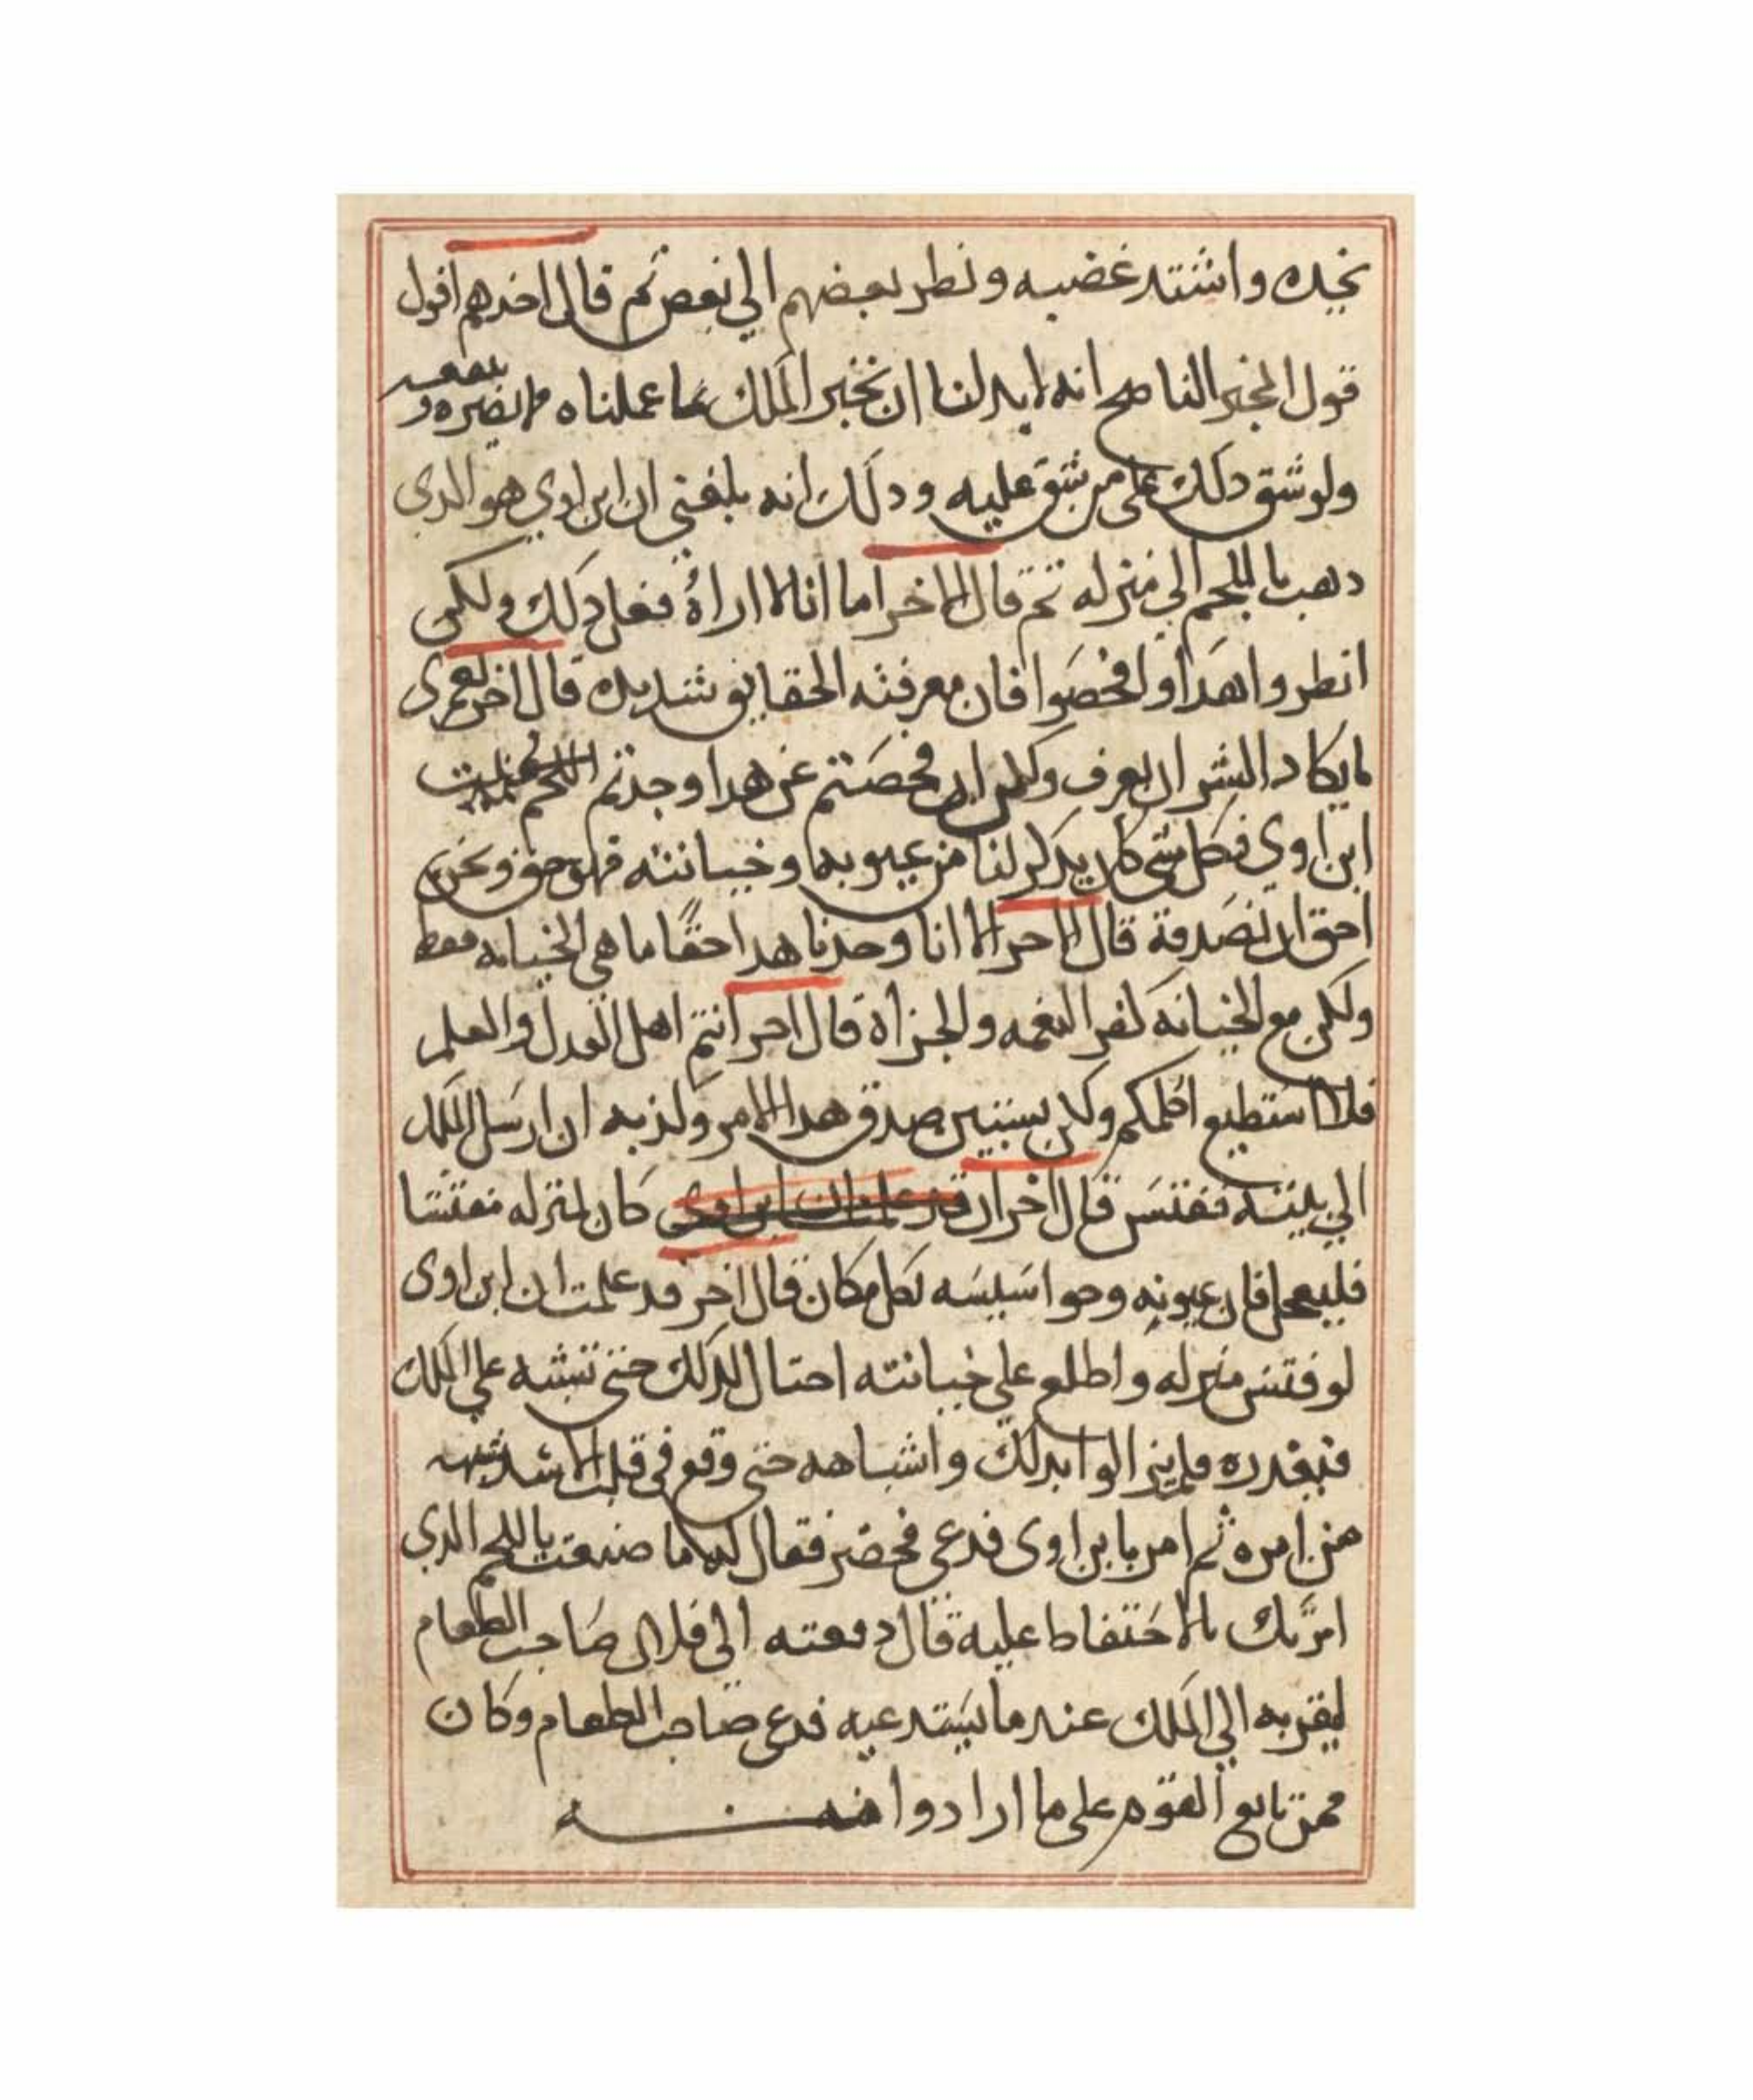 يجده واشتد غضبه ونظر بعضهم الي بعض ثم قال احدهم اقول
قول المخبر الناصح انه لا بد لنا ان نخبر الملك بما عملناه مما يضره وينفعه
ولو شق دلك على من شق عليه ودلك انه بلغني ان ابن اوي هو الدي
دهب باللحم الي منزله ثم قال الاخر اما انا لا اراه فعل دلك ولكن
انظروا هدا وافحصوا فان معرفته الحقايق شديده قال اخر لعمري
لا يكاد البشر ان يعرف ولكن ان فحصتم عن هدا وجدتم اللحم
ابن اوي فكل شي كان يدكر لنا من عيوبه وخيانته فهو حق ونحن
احق ان نصدقه قال الاخر انا وجدنا هدا حقا ما هي الخيانه فقط
ولكن مع الخيانه كفر النعمه والجراة قال اخر انتم اهل العدل والعلم
فلا استطيع اكلمكم ولكن يستبين صدق هدا الامر وكذبه ان ارسل الملك
الي بيته ففتش قال اخر ان قد علمت ان ابن اوي كان لمنزله مفتشا
فليعجل فان عيونه وجواسيسه بكل مكان قال اخر قد علمت ان ابن اوى
لو فتش منزله واطلع على خيانته احتال لدلك حتى تشبه على الملك
فيعدره فلم يزالوا بدلك واشباهه حتى وقع في قلب الاسد شبهه
من امره ثم امر بابن اوى فدعي فحضر فقال له ما صنعت باللحم الدي
امرتك بالاحتفاظ عليه قال دفعته الى فلان صاحب الطعام
ليقربه الي الملك عندما يستدعيه فدعى صاحب الطعام وكان
ممن تابع القوم على ما ارادوا منه